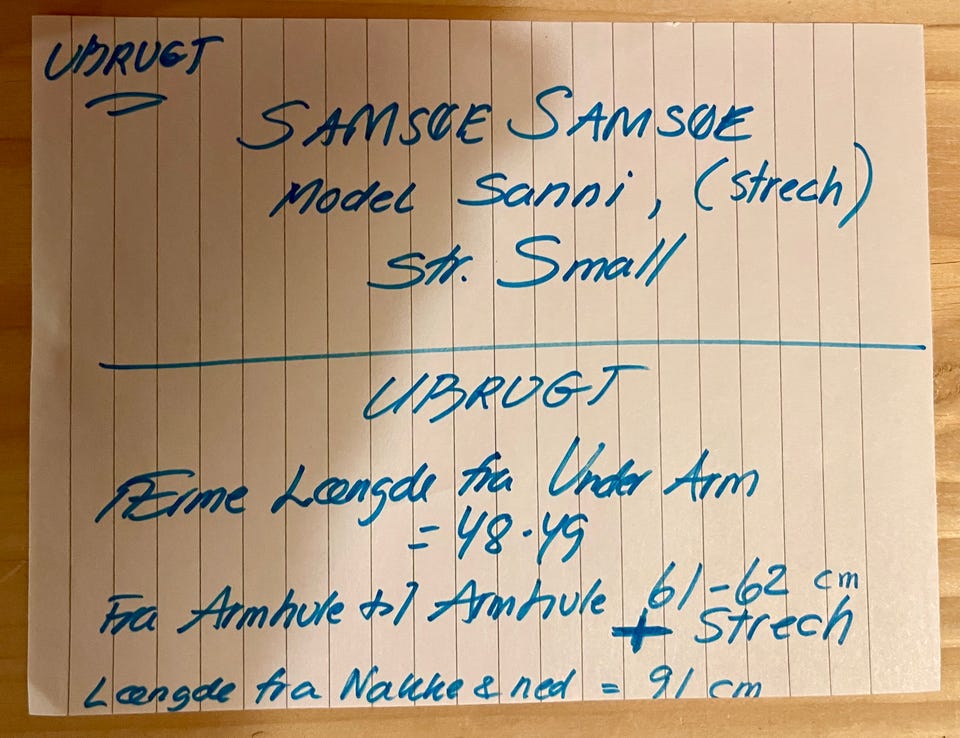 UBRUGT
SAMSØE SAMSØE
Model Sanni, (strech)
Str. Small
UBRUGT
ÆRme Længde fra Under Arm
= 48-49
Fra Armhule til Armhule 61-62 cm
+ Strech
Længde fra Nakke & ned = 91 cm